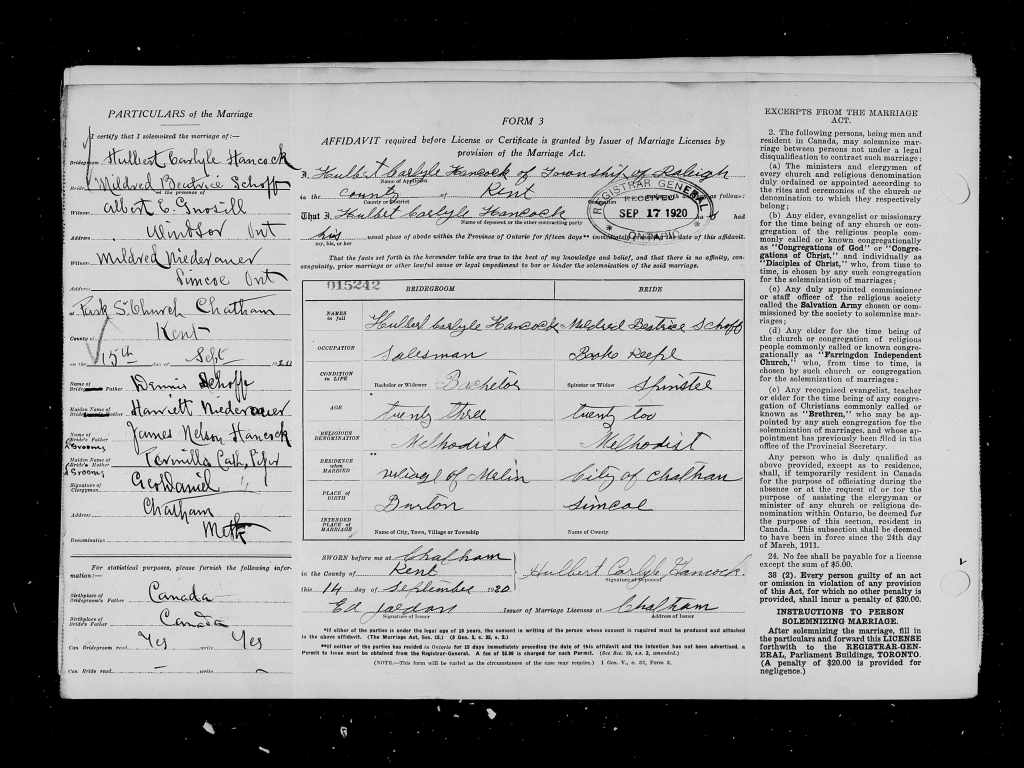 PARTICULARS of the Marriage
I certify that I solemnized the marriage of:—
Bridegroom Hulbert Carlyle Hancock
Bride Mildred Beatrice Schoff
in the presence of
Witness Albert E.
Address Windsor Ont
Witness Mildred Niederauer
Address Simcoe Ont
at Park St. Church Chatham
County of Kent
on the 15th day of Sept 1920
Name of Father Dennis Schoff
Maiden Name of Mother Harriett Niederauer
Name of Groom's Father James Nelson Hancock
Maiden Name of Groom's Mother Cath. Pifer
Signature of Clergyman Geo Daniel
Address Chatham
Denomination Meth
For statistical purposes, please furnish the following information:—
Birthplace of Bridegroom's Father Canada
Birthplace of Bride's Father Canada
Can Bridegroom read Yes write Yes
Can Bride read — write —
FORM 3
AFFIDAVIT required before License or Certificate is granted by Issuer of Marriage Licenses by
provision of the Marriage Act.
I, Hulbert Carlyle Hancock of Township of Raleigh
Name of Applicant
in the County of Kent as follow:
County or District
REGISTRAR GENERAL
RECEIVED
SEP 17 1920
ONTARIO
That I Hulbert Carlyle Hancock had
Name of deponent or the other contracting party
his usual place of abode within the Province of Ontario for fifteen days** immediately the date of this affidavit.
my, his, or her
That the facts set forth in the hereunder table are true to the best of my knowledge and belief, and that there is no affinity, con-
sanguinity, prior marriage or other lawful cause or legal impediment to bar or hinder the solemnization of the said marriage.
015242
BRIDEGROOM BRIDE
NAMES in full Hulbert Carlyle Hancock Mildred Beatrice Schoff
OCCUPATION Salesman Book Keepe
CONDITION in LIFE Bachelor or Widower Bachelor Spinster or Widow Spinster
AGE twenty three twenty too
RELIGIOUS DENOMINATION Methodist Methodist
RESIDENCE when MARRIED village of Merlin City of Chatham
PLACE OF BIRTH Buxton Simcoe
INTENDED PLACE OF MARRIAGE Name of City, Town, Village or Township Name of County
SWORN before me at Chatham
in the County of Kent
this 14 day of September 1920
Hulbert Carlyle Hancock.
Signature of Deponent
Ed Issuer of Marriage Licenses at Chatham
Signature of Issuer Address of Issuer
*If either of the parties is under the legal age of 18 years, the consent in writing of the person whose consent is required must be produced and attached
to the above affidavit. (The Marriage Act, Sec. 15.)
**If neither of the parties has resided in Ontario for 15 days immediately preceding the date of this affidavit and the intention has not been advertised, a
Permit to issue must be obtained from the Registrar-General. A fee of $5.00 is charged for each Permit. (See Sec. 19, ss. 2, amended.)
(NOTE.—This form will be varied as the circumstances of the case may require.) 1 Geo. V., c. 32, Form 3.
EXCERPTS FROM THE MARRIAGE
ACT.
2. The following persons, being men and
resident in Canada, may solemnize mar-
riage between persons not under a legal
disqualification to contract such marriage:
(a) The ministers and clergymen of
every church and religious denomination
duly ordained or appointed according to
the rites and ceremonies of the church or
denomination to which they respectively
belong;
(b) Any elder, evangelist or missionary
for the time being of any church or con-
gregation of the religious people com-
monly called or known congregationally
as "Congregations of God" or "Congre-
gations of Christ," and individually as
"Disciples of Christ," who, from time to
time, is chosen by any such congregation
for the solemnization of marriages;
(c) Any duly appointed commissioner
or staff officer of the religious society
called the Salvation Army chosen or com-
missioned by the society to solemnize mar-
riages;
(d) Any elder for the time being of
the church or congregation of religious
people commonly called or known congre-
gationally as "Farringdon Independent
Church," who, from time to time, is
chosen by such church or congregation
for the solemnization of marriages;
(e) Any recognized evangelist, teacher
or elder for the time being of any congre-
gation of Christians commonly called or
known as "Brethren," who may be ap-
pointed by any such congregation for the
solemnization of marriages, and whose ap-
pointment has previously been filed in the
office of the Provincial Secretary.
Any person who is duly qualified as
above provided, except as to residence,
shall, if temporarily resident in Canada
for the purpose of officiating during the
absence or at the request of or for the
purpose of assisting the clergyman or
minister of any church or religious de-
nomination within Ontario, be deemed for
the purpose of this section, resident in
Canada. This subsection shall be deemed
to have been in force since the 24th day
of March, 1911.
24. No fee shall be payable for a license
except the sum of $5.00.
38 (2). Every person guilty of an act
or omission in violation of any provision
of this Act, for which no other penalty is
provided, shall incur a penalty of $20.00.
INSTRUCTIONS TO PERSON
SOLEMNIZING MARRIAGE.
After solemnizing the marriage, fill in
the particulars and forward this LICENSE
forthwith to the REGISTRAR-GEN-
ERAL, Parliament Buildings, TORONTO.
(A penalty of $20.00 is provided for
negligence.)